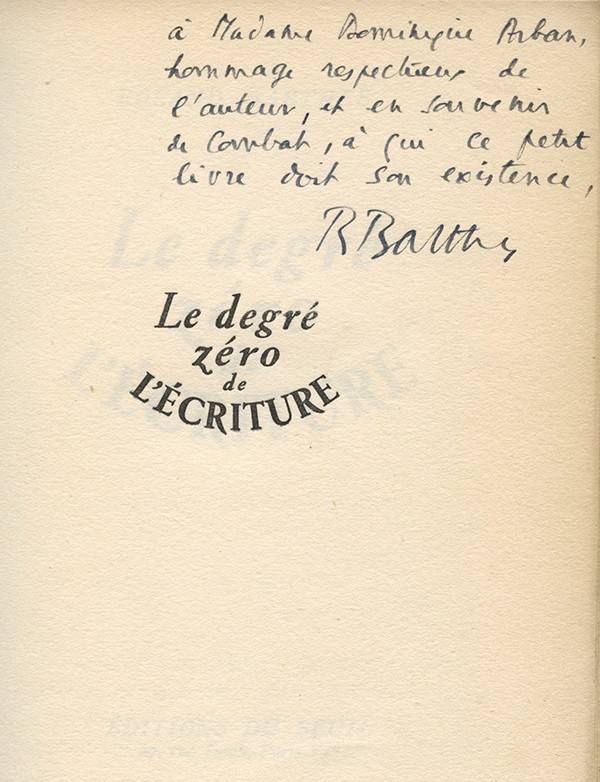 à Madame Dominique Arban,
hommage respectueux de
l'auteur, et en souvenir
de Combat, à qui ce petit
livre doit son existence,
RBarthes
Le degré
zéro
de
L'ÉCRITURE
ÉDITIONS DU SEUIL